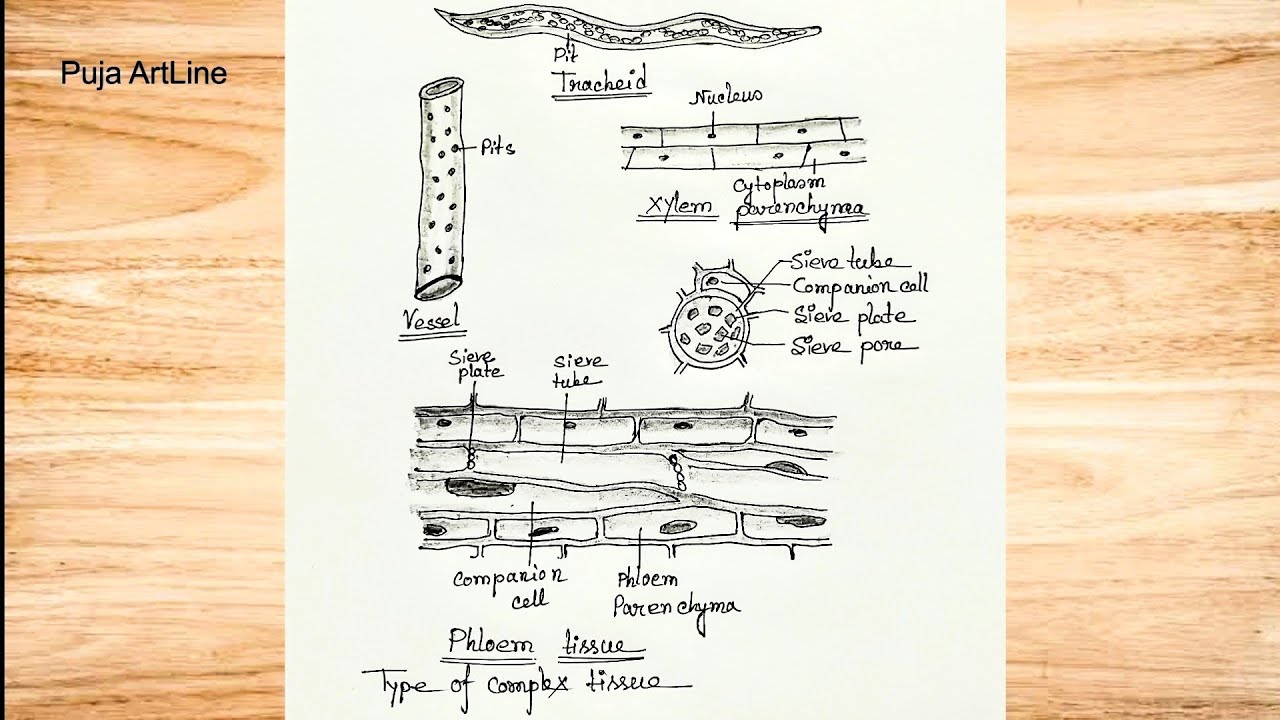 Puja ArtLine
Pit
Tracheid
Pits
Vessel
Nucleus
Cytoplasm
Xylem parenchyma
Sieve tube
Companion cell
Sieve plate
Sieve pore
Sieve
plate
Sieve
tube
Companion
cell
Phloem
Parenchyma
Phloem tissue
Type of complex tissue